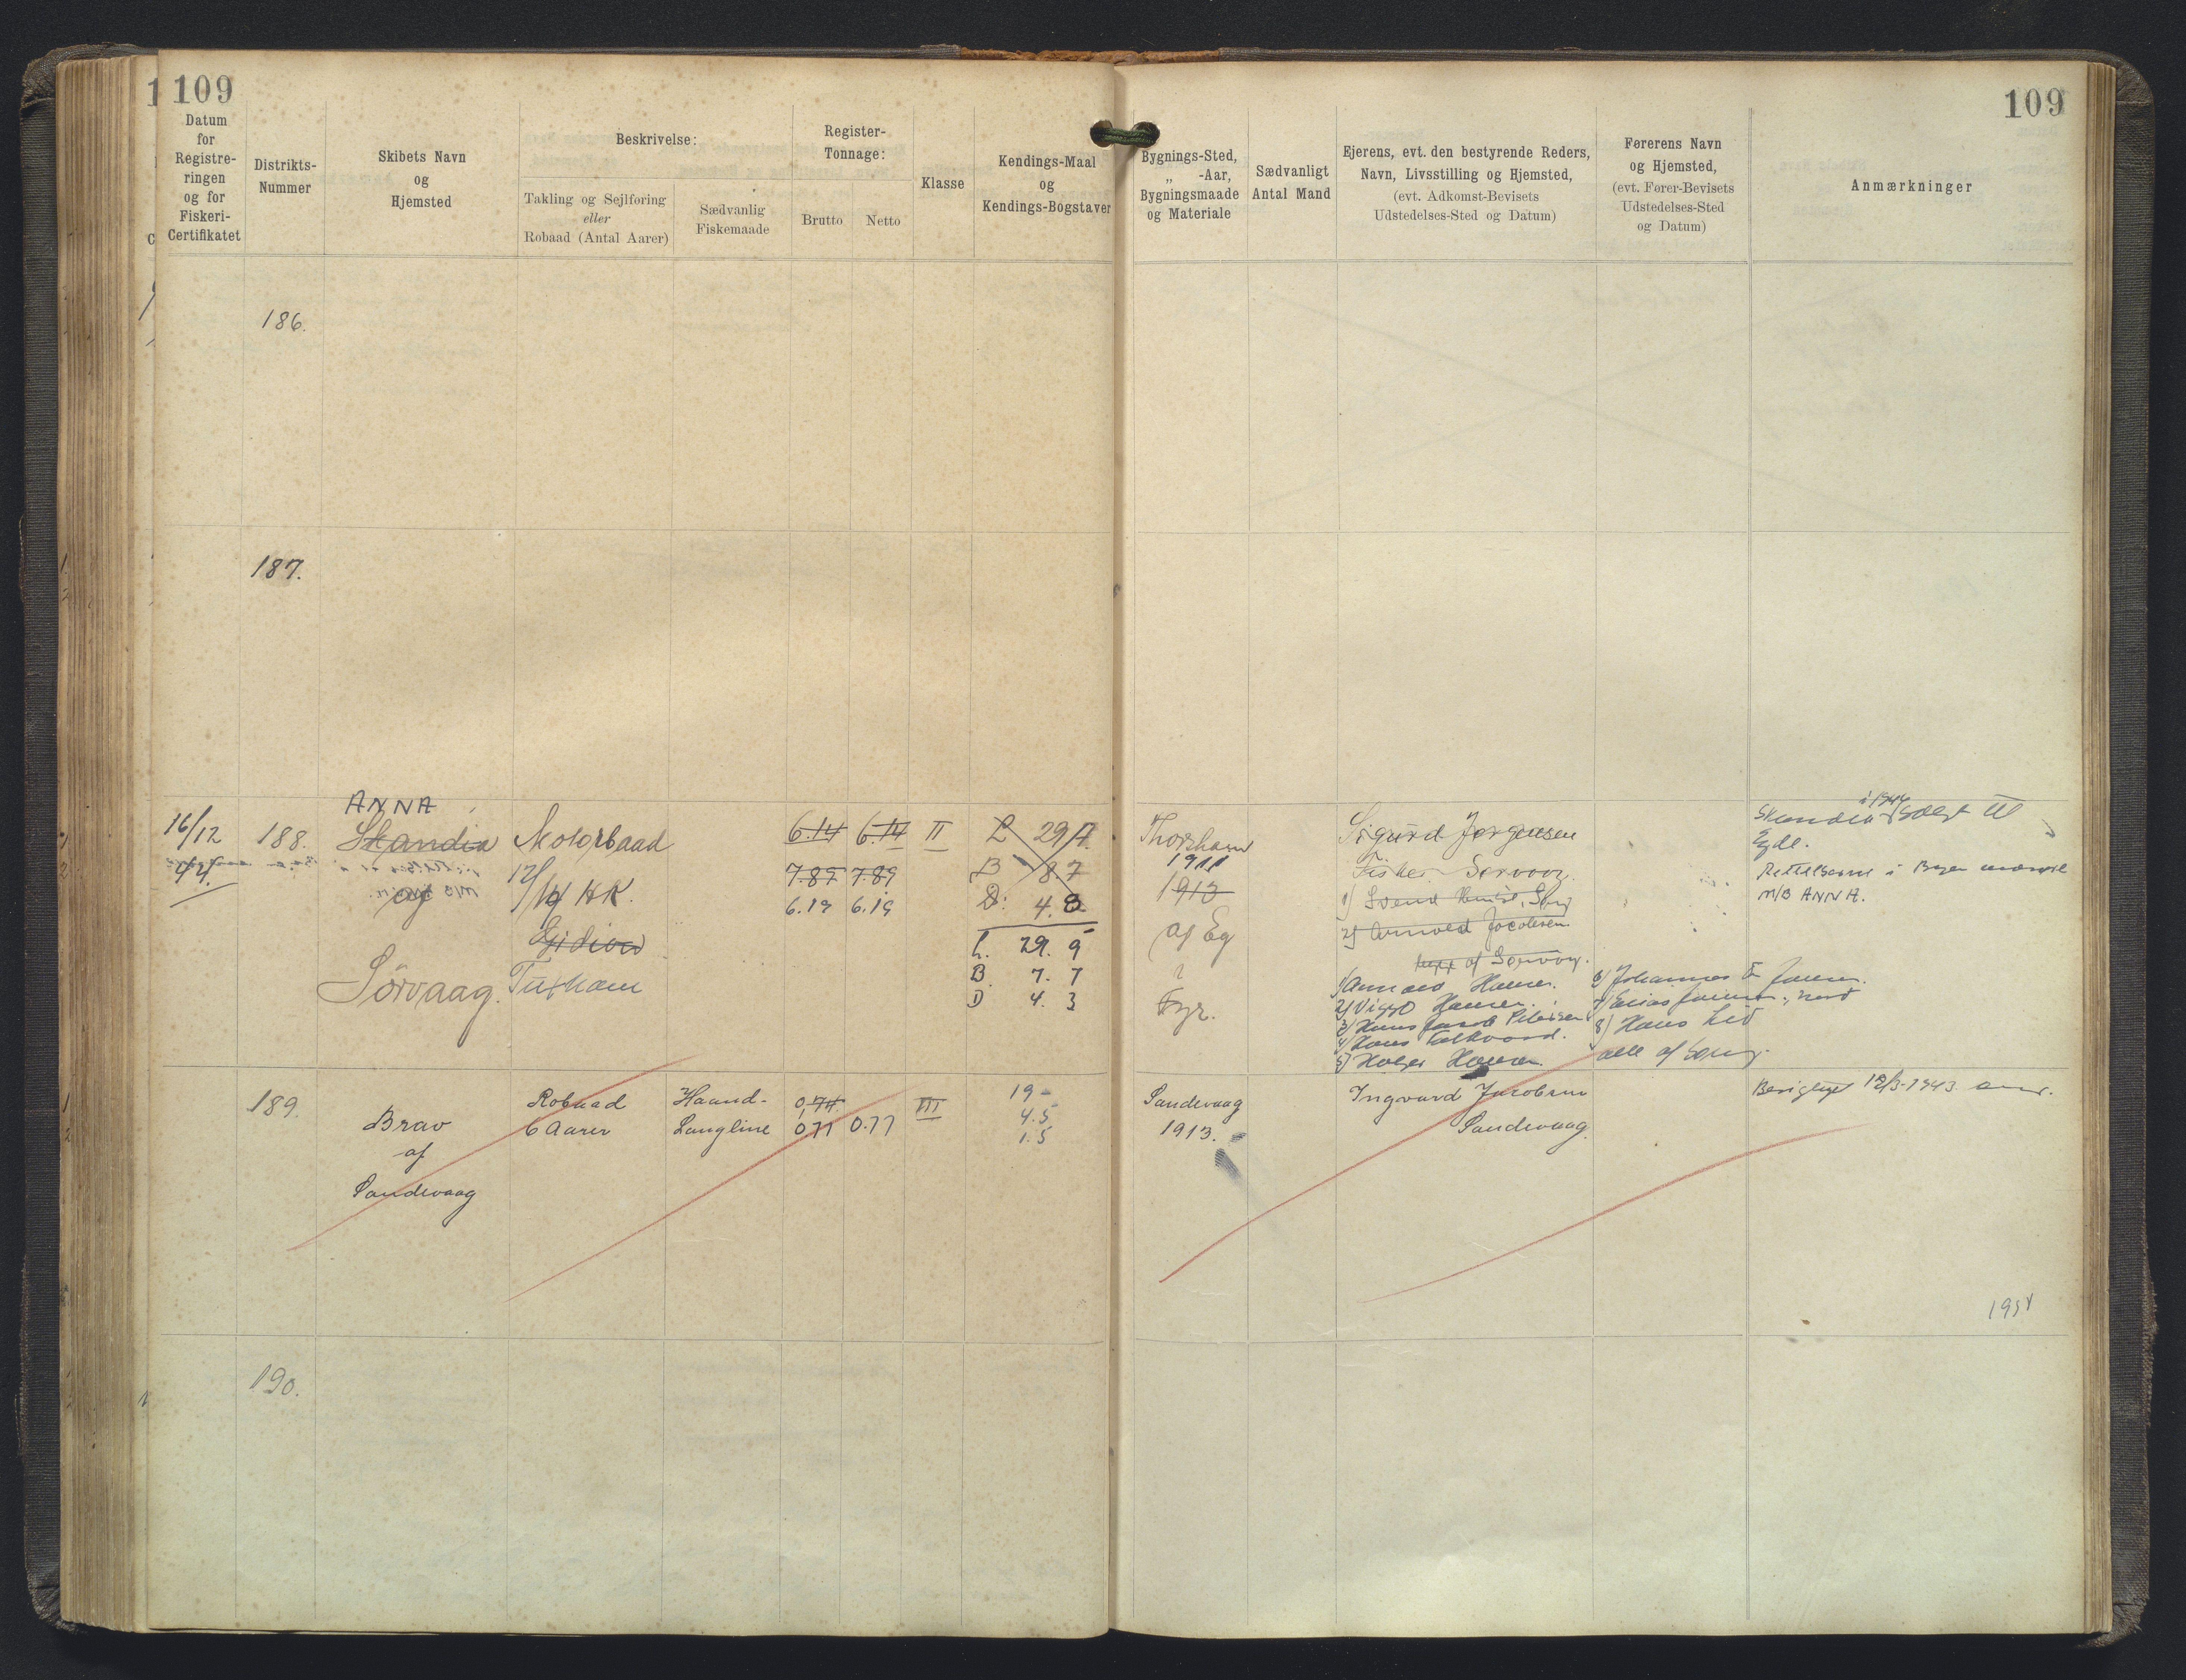 109
109
Datum
for
Registre-
ringen
og for
Fiskeri-
Certifikatet
Distrikts-
Nummer
Skibets Navn
og
Hjemsted
Beskrivelse:
Takling og Sejlføring
eller
Robaad (Antal Aarer)
Sædvanlig
Fiskemaade
Register-
Tonnage:
Brutto
Netto
Klasse
Kendings-Maal
og
Kendings-Bogstaver
Bygnings-Sted,
„ -Aar,
Bygningsmaade
og Materiale
Sædvanligt
Antal Mand
Ejerens, evt. den bestyrende Reders,
Navn, Livsstilling og Hjemsted,
(evt. Adkomst-Bevisets
Udstedelses-Sted og Datum)
Førerens Navn
og Hjemsted,
(evt. Fører-Bevisets
Udstedelses-Sted
og Datum)
Anmærkninger
186.
187.
16/12
44.
188.
ANNA
Skandia
af
Sörvaag.
Motorbaad
HK.
Gideon
Tuxham
6.14 6.14 II
7.89 7.89
6.19 6.19
L 29
B 8 7
D: 4. 8
L. 29. 9
B. 7. 7
D 4. 3
Thorshavn
1911
1913
af Eg
Fyr.
Sigurd Jørgensen
Fisker Sørvaag.
1)
2) Arnold Jacobsen
af Sørvaag.
1) Arnold Hansen.
2) Viggo Hansen.
3) Hans Jacob Petersen
4) Hans
5) Holger Hansen
6) Johannes
7)
8) Hans
alle af
Skandia i 1946 solgt til
Ejde.
i
M/B ANNA.
189.
Brav
af
Sandevaag
Robaad
6 Aarer
Haand-
Langline
0,74
0,77 0.77
III
19 -
4.5
1.5
Sandevaag
1913.
Ingvard Jacobsen
Sandevaag.
12/3-1943
190.